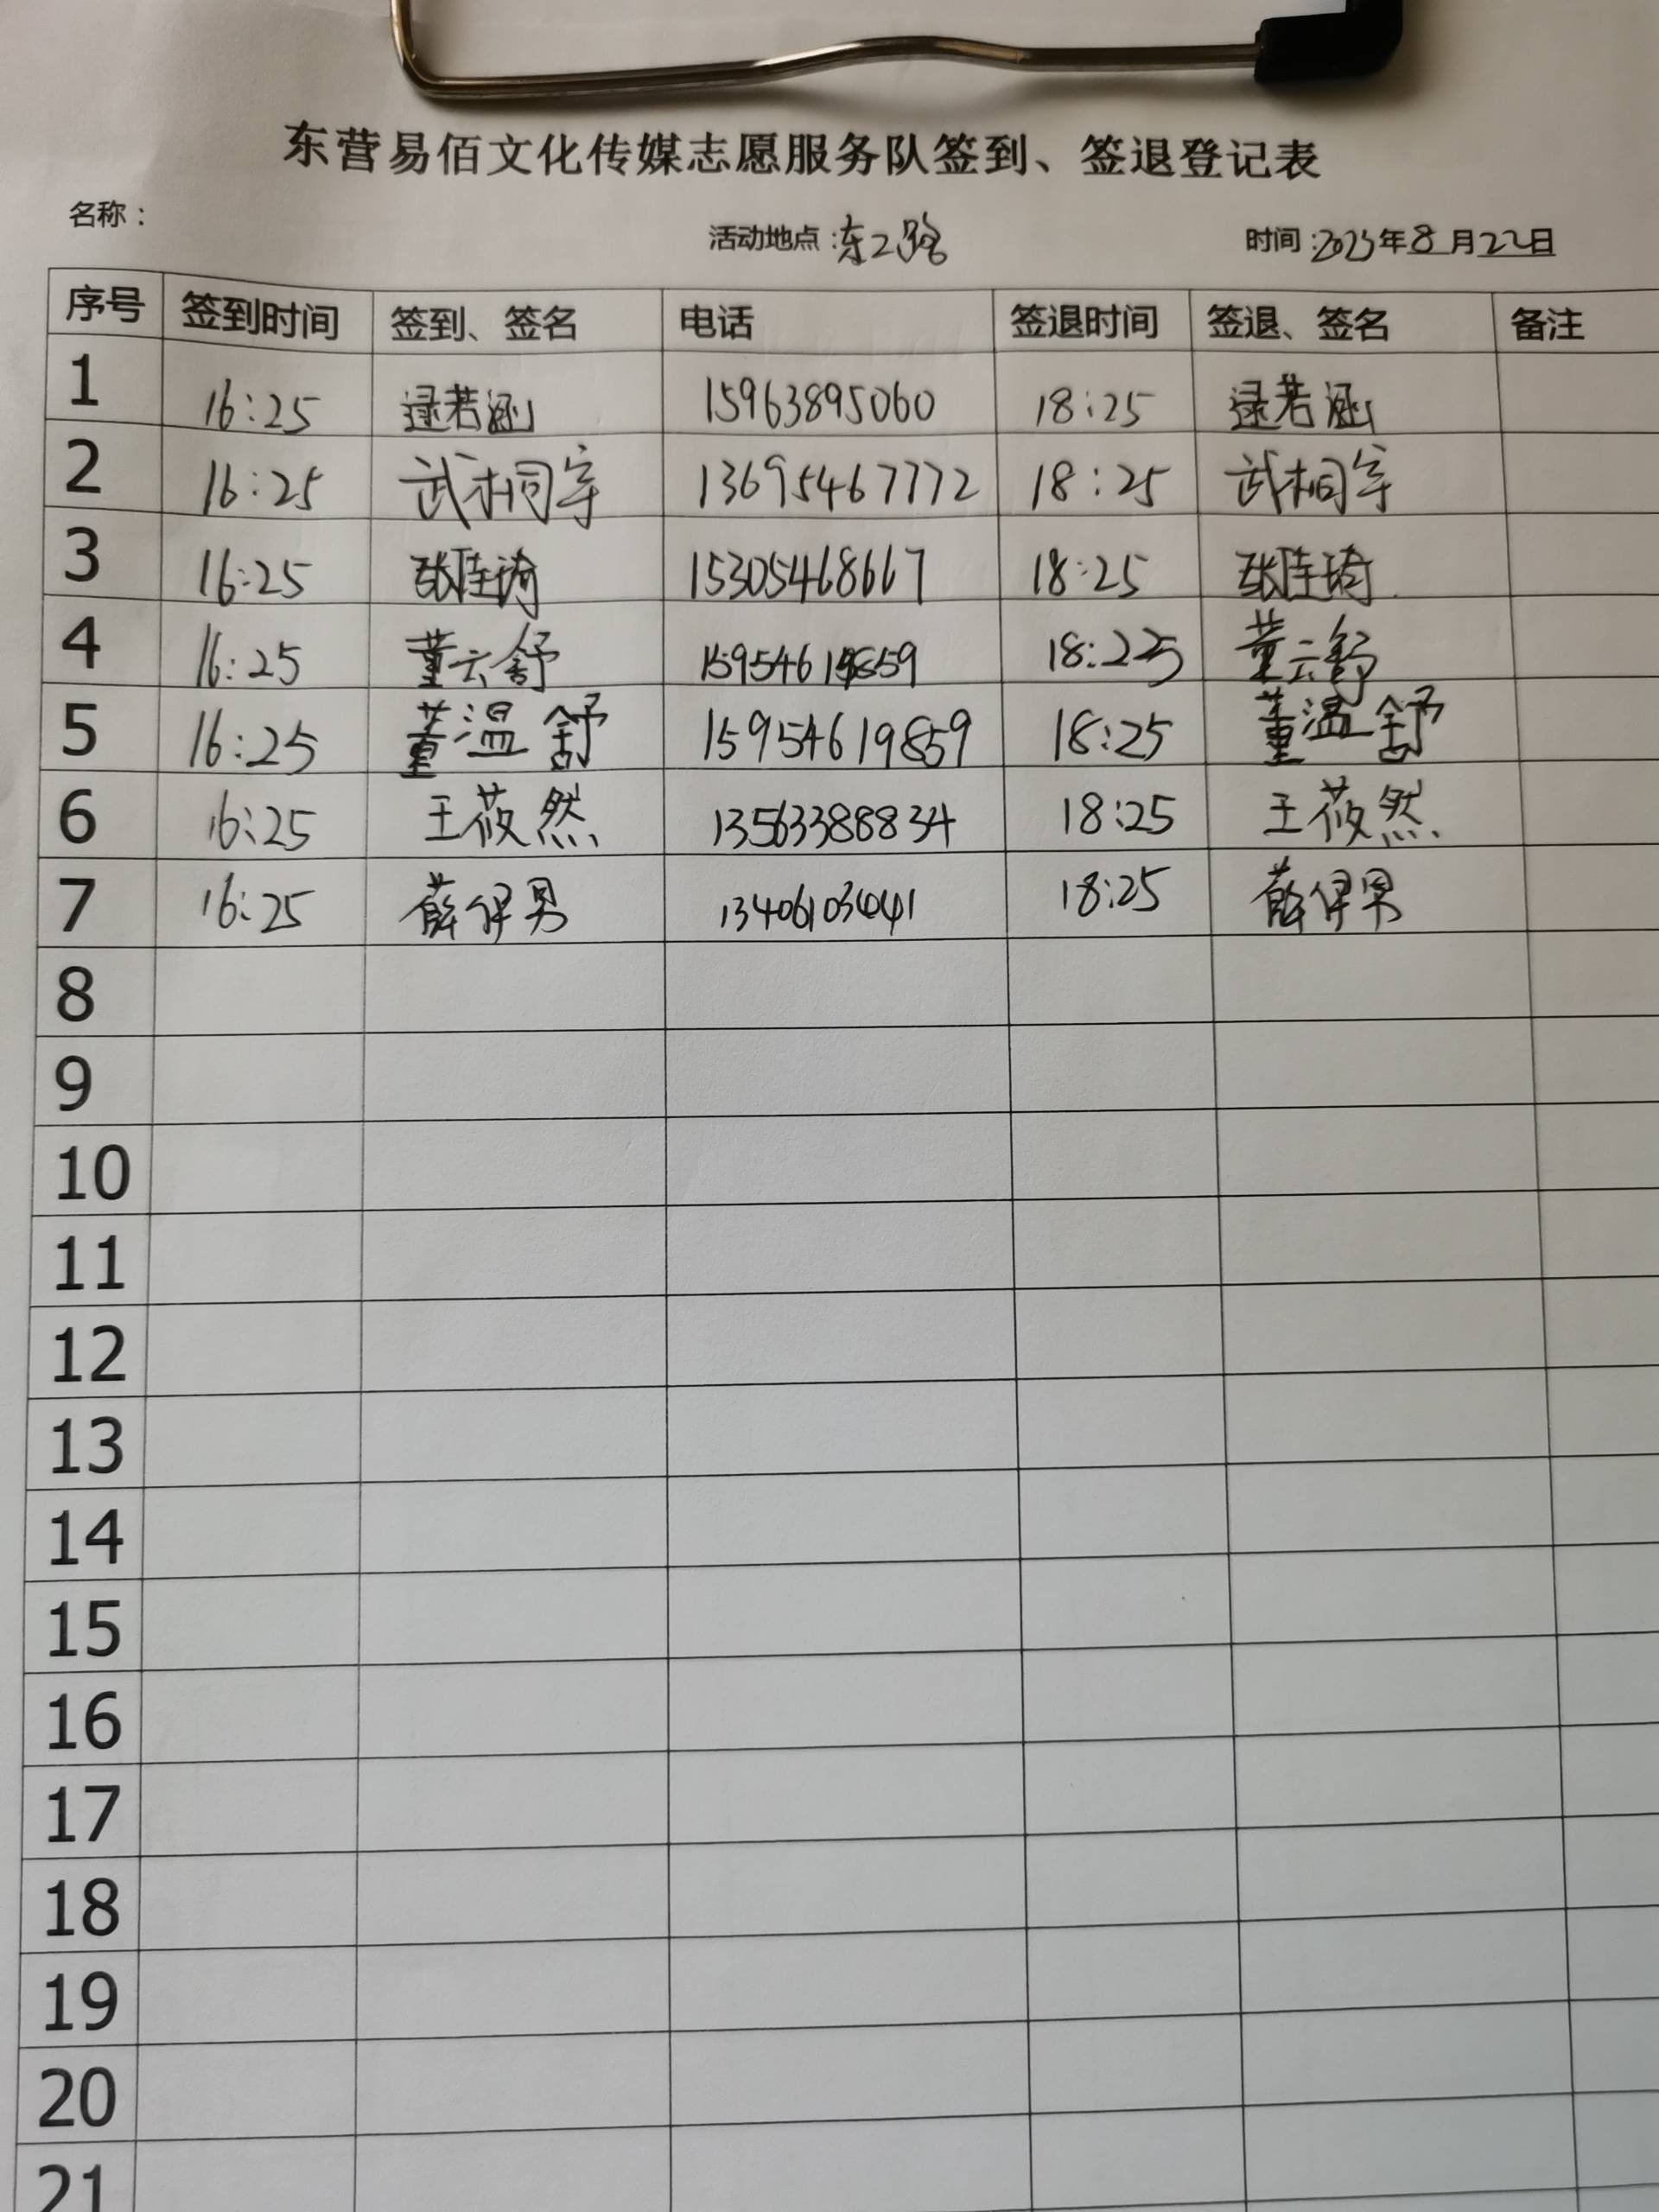 东营易佰文化传媒志愿服务队签到、签退登记表
名称：
活动地点：东二路 时间：2023年8月22日
序号 签到时间 签到、签名 电话 签退时间 签退、签名 备注
1 16:25 逯若涵 15963895060 18:25 逯若涵
2 16:25 武桐宇 13695467772 18:25 武桐宇
3 16:25 张佳琦 15305468667 18:25 张佳琦
4 16:25 董云舒 15954619859 18:25 董云舒
5 16:25 董温舒 15954619859 18:25 董温舒
6 16:25 王莜然 13563388834 18:25 王莜然
7 16:25 薛伊男 18:25 薛伊男
8
9
10
11
12
13
14
15
16
17
18
19
20
21